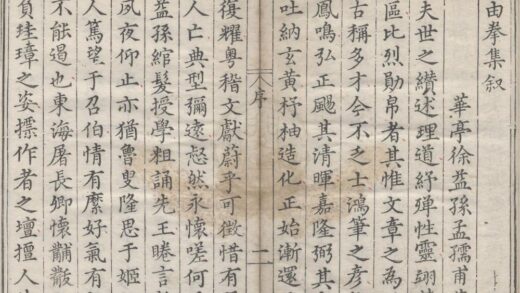 由拳集叙
華亭徐益孫孟孺甫
夫世之纘述理道紓殫性靈翊
區比烈勛帛者其惟文章之為
古稱多才今不乏士鴻筆之彥
鳳鳴弘正颺其清暉嘉隆弼其
吐納玄黄杼柚造化正始漸還
序 二
復耀粤稽文獻蔚乎可徵惜有
人亡典型彌遠惄然永懷嗟何
益孫綰髮授學粗誦先王睠言
夙夜仰止亦猶魯叟隆思于姬
人篤望于召伯情有縻好氣有
不能遏也東海屠長卿懷黼黻
負珪璋之姿摽作者之壇擅人